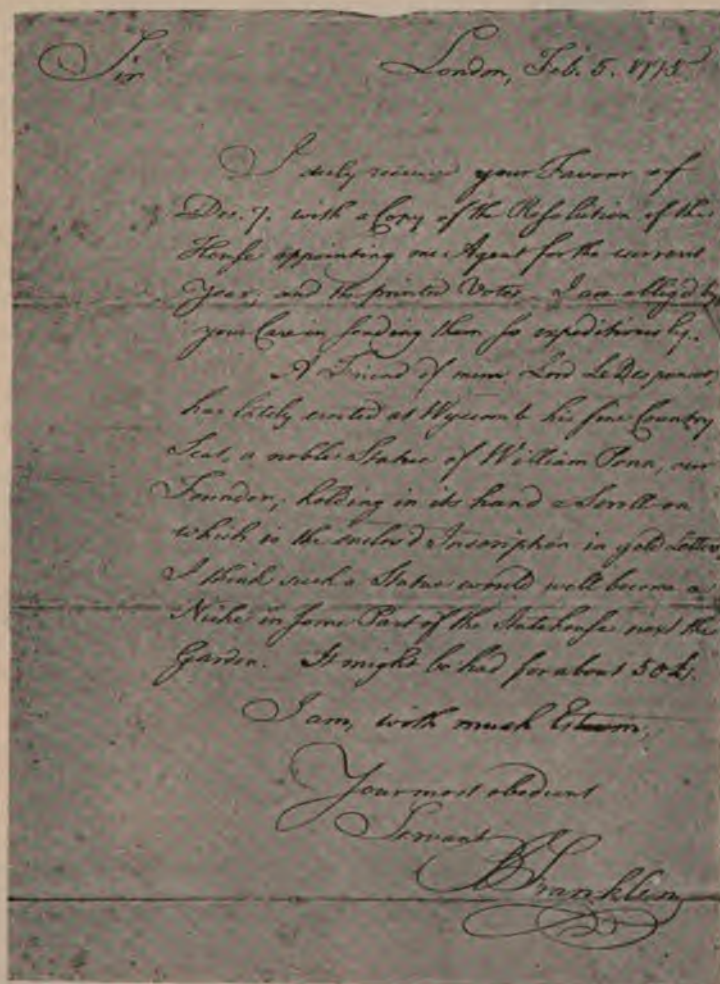 Sir London, Feb. 5. 1775
I duly received your Favour of
Dec. 7. with a Copy of the Resolution of the
House appointing me Agent for the current
Year, and the printed Votes. I am obliged by
your Care in sending them so expeditiously.
A Friend of mine Lord Le Despencer,
has lately erected at Wycomb his fine Country
Seat, a noble Statue of William Penn, our
Founder, holding in its hand a Scroll on
which is the enclos'd Inscription in gold Letters
I think such a Statue would well become a
Niche in some Part of the Statehouse next the
Garden. It might be had for about 50£.
I am, with much Esteem,
Your most obedient
Servant
B Franklin